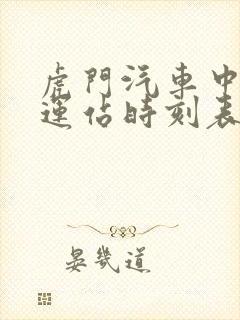 虎門汽車中
運佔時刻表
晏幾道